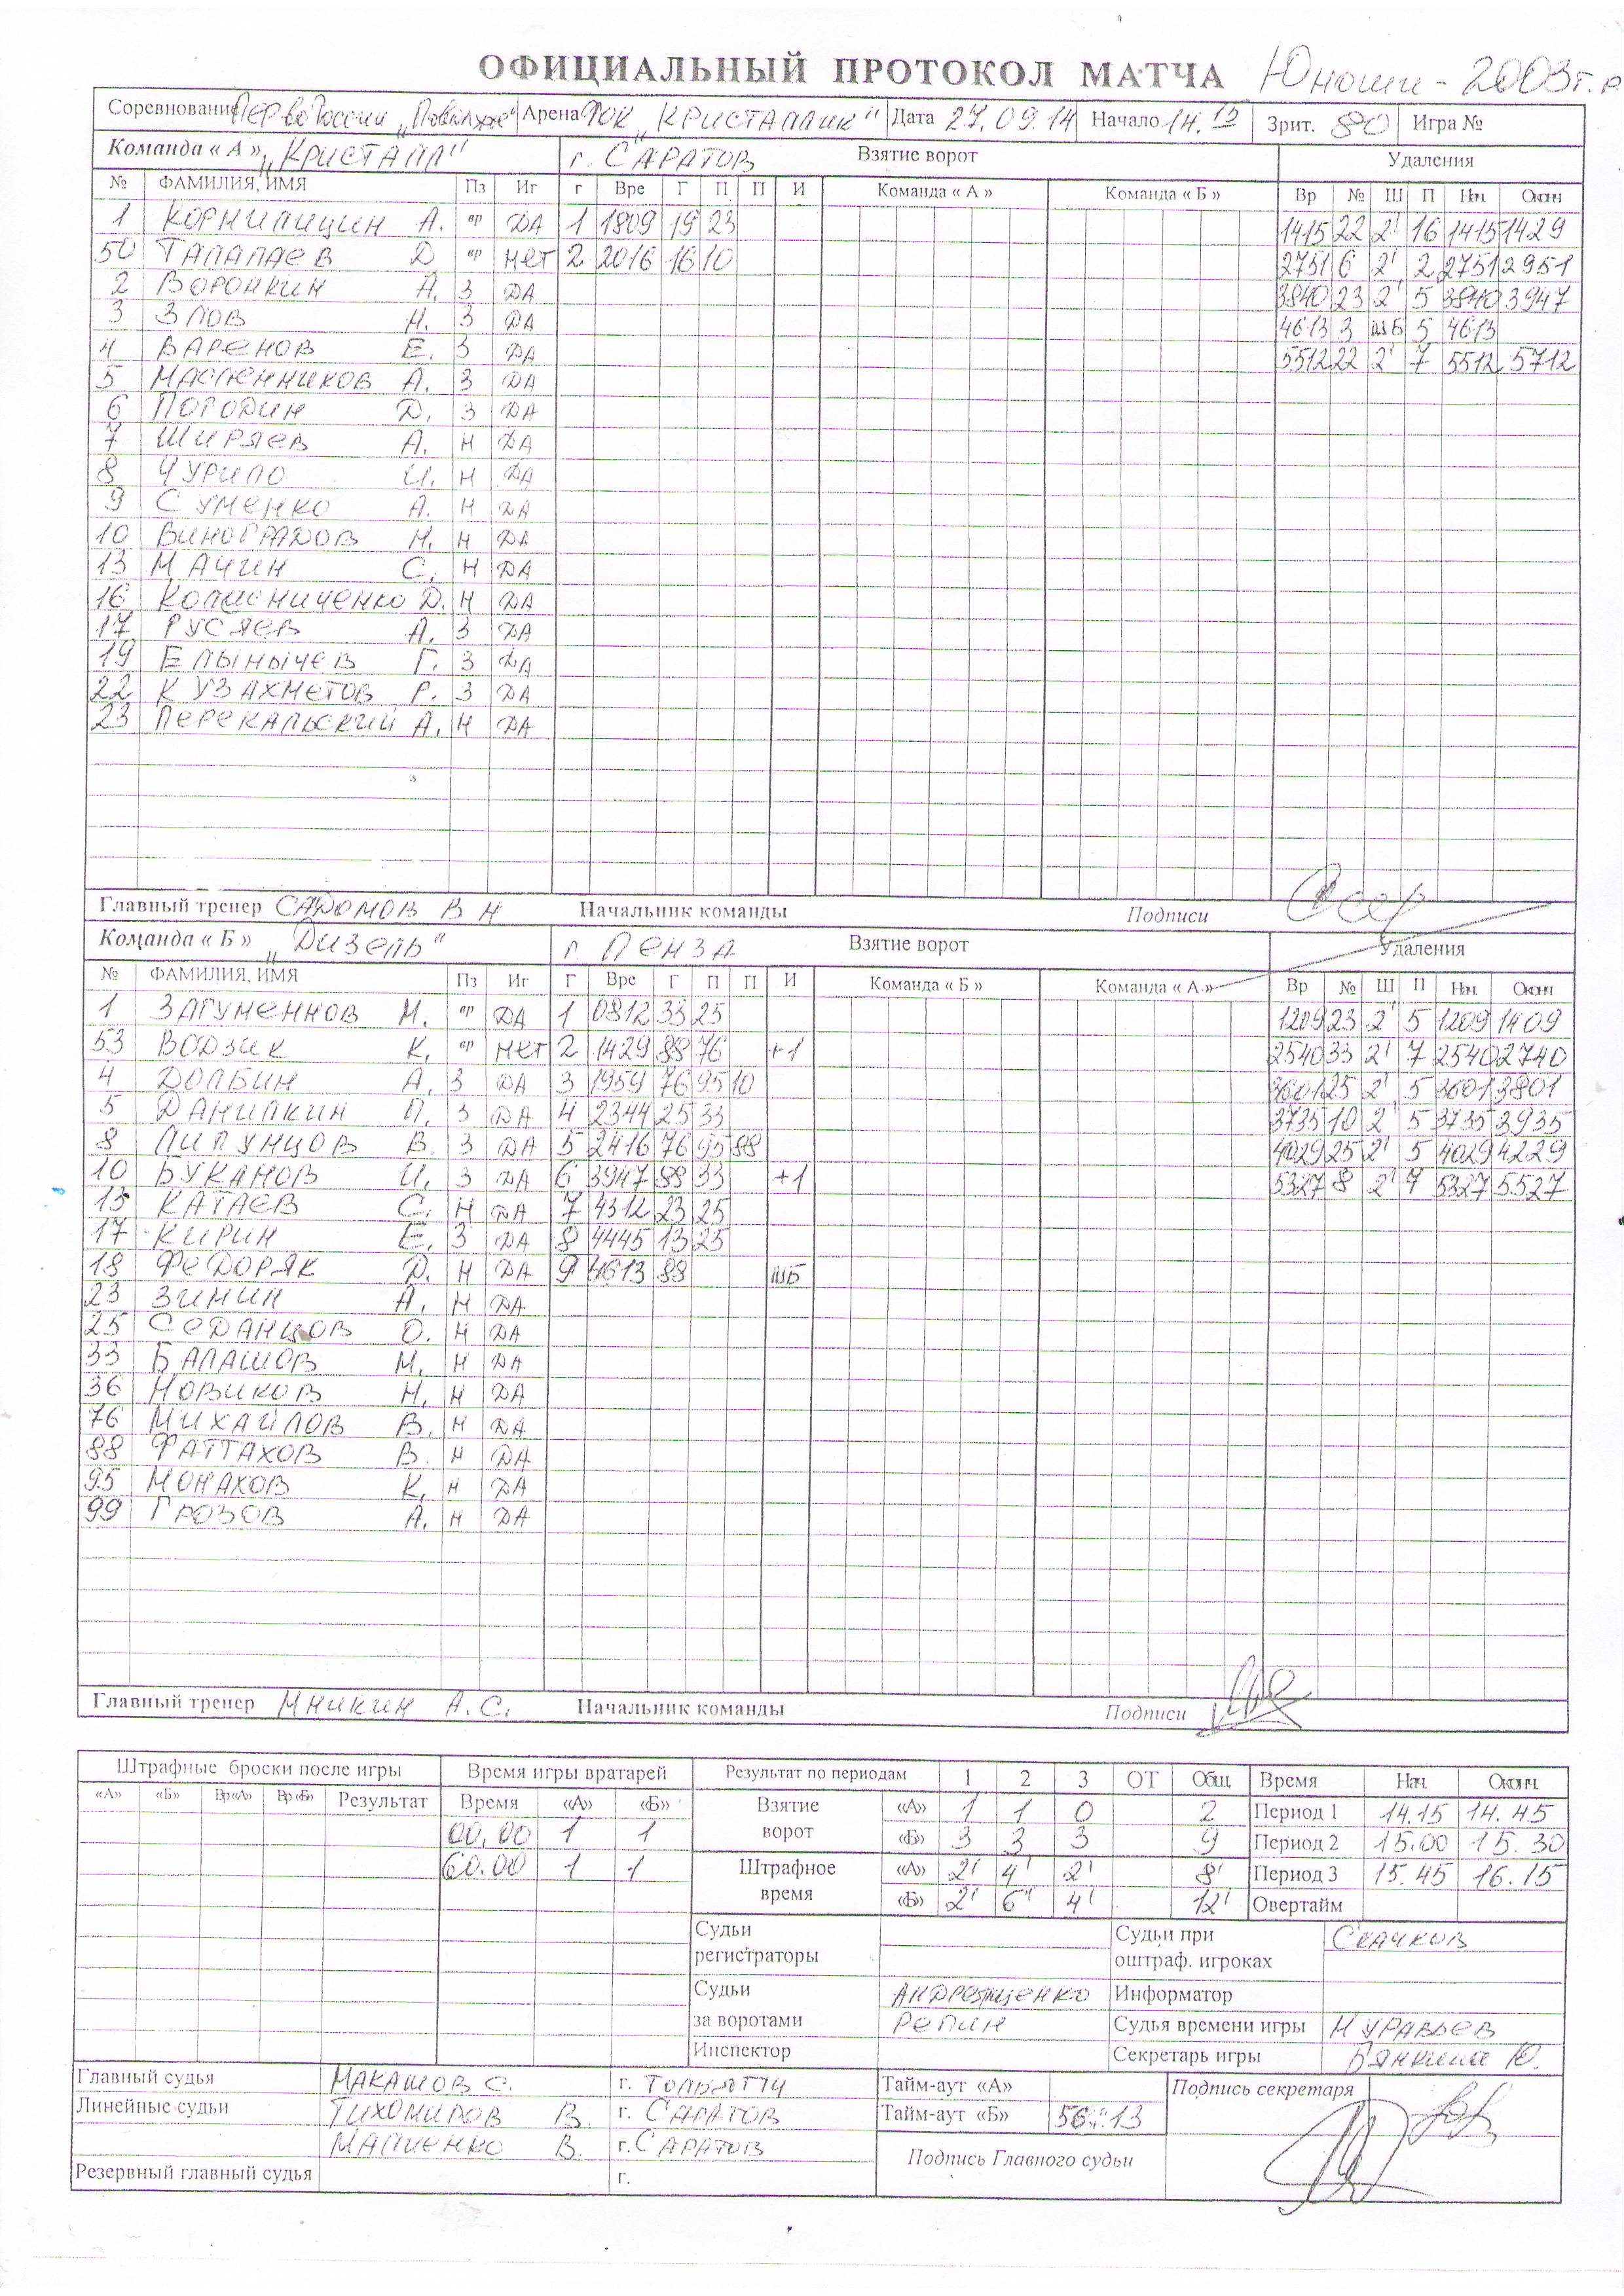 ОФИЦИАЛЬНЫЙ ПРОТОКОЛ МАТЧА Юноши - 2003 г. р
Соревнование Перво России „Поволжье" Арена ФОК „КРИСТАЛЛИК" Дата 27.09.14 Начало 14.15 Зрит. 80 Игра №
Команда « А » „КРИСТАЛЛ" г. САРАТОВ Взятие ворот Удаления
№ ФАМИЛИЯ, ИМЯ Пз Иг г Вре Г П П И Команда « А » Команда « Б » Вр № Ш П Нач. Оконч
1 КОРНИЛИЦИН А. вр ДА 1 1809 19 23 1415 22 2' 16 1415 1429
50 ТАЛАЛАЕВ Д вр НЕТ 2 2016 16 10 2751 6 2' 2 2751 2951
2 ВОРОНКИН А. З ДА 3840 23 2' 5 3840 3947
3 ЗЛОВ Н. З ДА 4613 3 ШБ 5 4613
4 ВАРЕНОВ Е. З ДА 5512 22 2' 7 5512 5712
5 МАСЛЕННИКОВ А. З ДА
6 ПОГОДИН Д. З ДА
7 ШИРЯЕВ А. Н ДА
8 ЧУРИЛО И. Н ДА
9 СУМЕНКО А. Н ДА
10 ВИНОГРАДОВ Н. Н ДА
13 МАЧИН С. Н ДА
16 КОЛИСНИЧЕНКО Д. Н ДА
17 РУСЯЕВ А. З ДА
19 ЕЛЫНЫЧЕВ Г. З ДА
22 КУЗАХМЕТОВ Р. З ДА
23 ПЕРЕКАЛЬСКИЙ А. Н ДА
Главный тренер САФОМОВ В Н Начальник команды Подписи
Команда « Б » „Дизель" г ПЕНЗА Взятие ворот Удаления
№ ФАМИЛИЯ, ИМЯ Пз Иг Г Вре Г П П И Команда « Б » Команда « А » Вр № Ш П Нач. Оконч
1 ЗАГУМЕННОВ М. вр ДА 1 0812 33 25 1209 23 2' 5 1209 1409
53 ВОДЗИК К. вр НЕТ 2 1429 88 76 +1 2540 33 2' 7 2540 2740
4 ДОЛБИН А. З ДА 3 1959 76 95 10 3601 25 2' 5 3601 3801
5 ДАНИЛКИН П. З ДА 4 2344 25 33 3735 10 2' 5 3735 3935
8 ЛИПУНЦОВ В. З ДА 5 2416 76 95 88 4029 25 2' 5 4029 4229
10 БУКАНОВ И. З ДА 6 3947 88 33 +1 5327 8 2' 7 5327 5527
13 КАТАЕВ С. Н ДА 7 4312 23 25
17 КИРИН Е. З ДА 8 4445 13 25
18 ФЕДОРЯК Д. Н ДА 9 4613 88 ШБ
23 ЗИНИН А. Н ДА
25 СЕДАНЦОВ О. Н ДА
33 БАЛАШОВ М. Н ДА
36 НОВИКОВ Н. Н ДА
76 МИХАЙЛОВ В. Н ДА
88 ФАТТАХОВ В. Н ДА
95 МОНАХОВ К. Н ДА
99 ГРОЗОВ А. Н ДА
Главный тренер МНИКИН А.С. Начальник команды Подписи
Штрафные броски после игры Время игры вратарей Результат по периодам 1 2 3 ОТ Общ. Время Нач. Оконч.
«А» «Б» Вр«А» Вр«Б» Результат Время «А» «Б» Взятие ворот «А» 1 1 0 2 Период 1 14.15 14.45
00.00 1 1 «Б» 3 3 3 9 Период 2 15.00 15.30
60.00 1 1 Штрафное время «А» 2' 4' 2' 8' Период 3 15.45 16.15
«Б» 2' 6' 4' 12' Овертайм
Судьи регистраторы Судьи при оштраф. игроках СКАЧКОВ
Судьи за воротами АНДРЕЯЩЕНКО Информатор
РЕПИН Судья времени игры МУРАВЬЕВ
Инспектор Секретарь игры Вянкина Ю.
Главный судья МАКАШОВ С. г. ТОЛЬЯТТИ Тайм-аут «А» Подпись секретаря
Линейные судьи ТИХОМИРОВ В. г. САРАТОВ Тайм-аут «Б» 56:13
МАЛИЕНКО В. г. САРАТОВ Подпись Главного судьи
Резервный главный судья г.